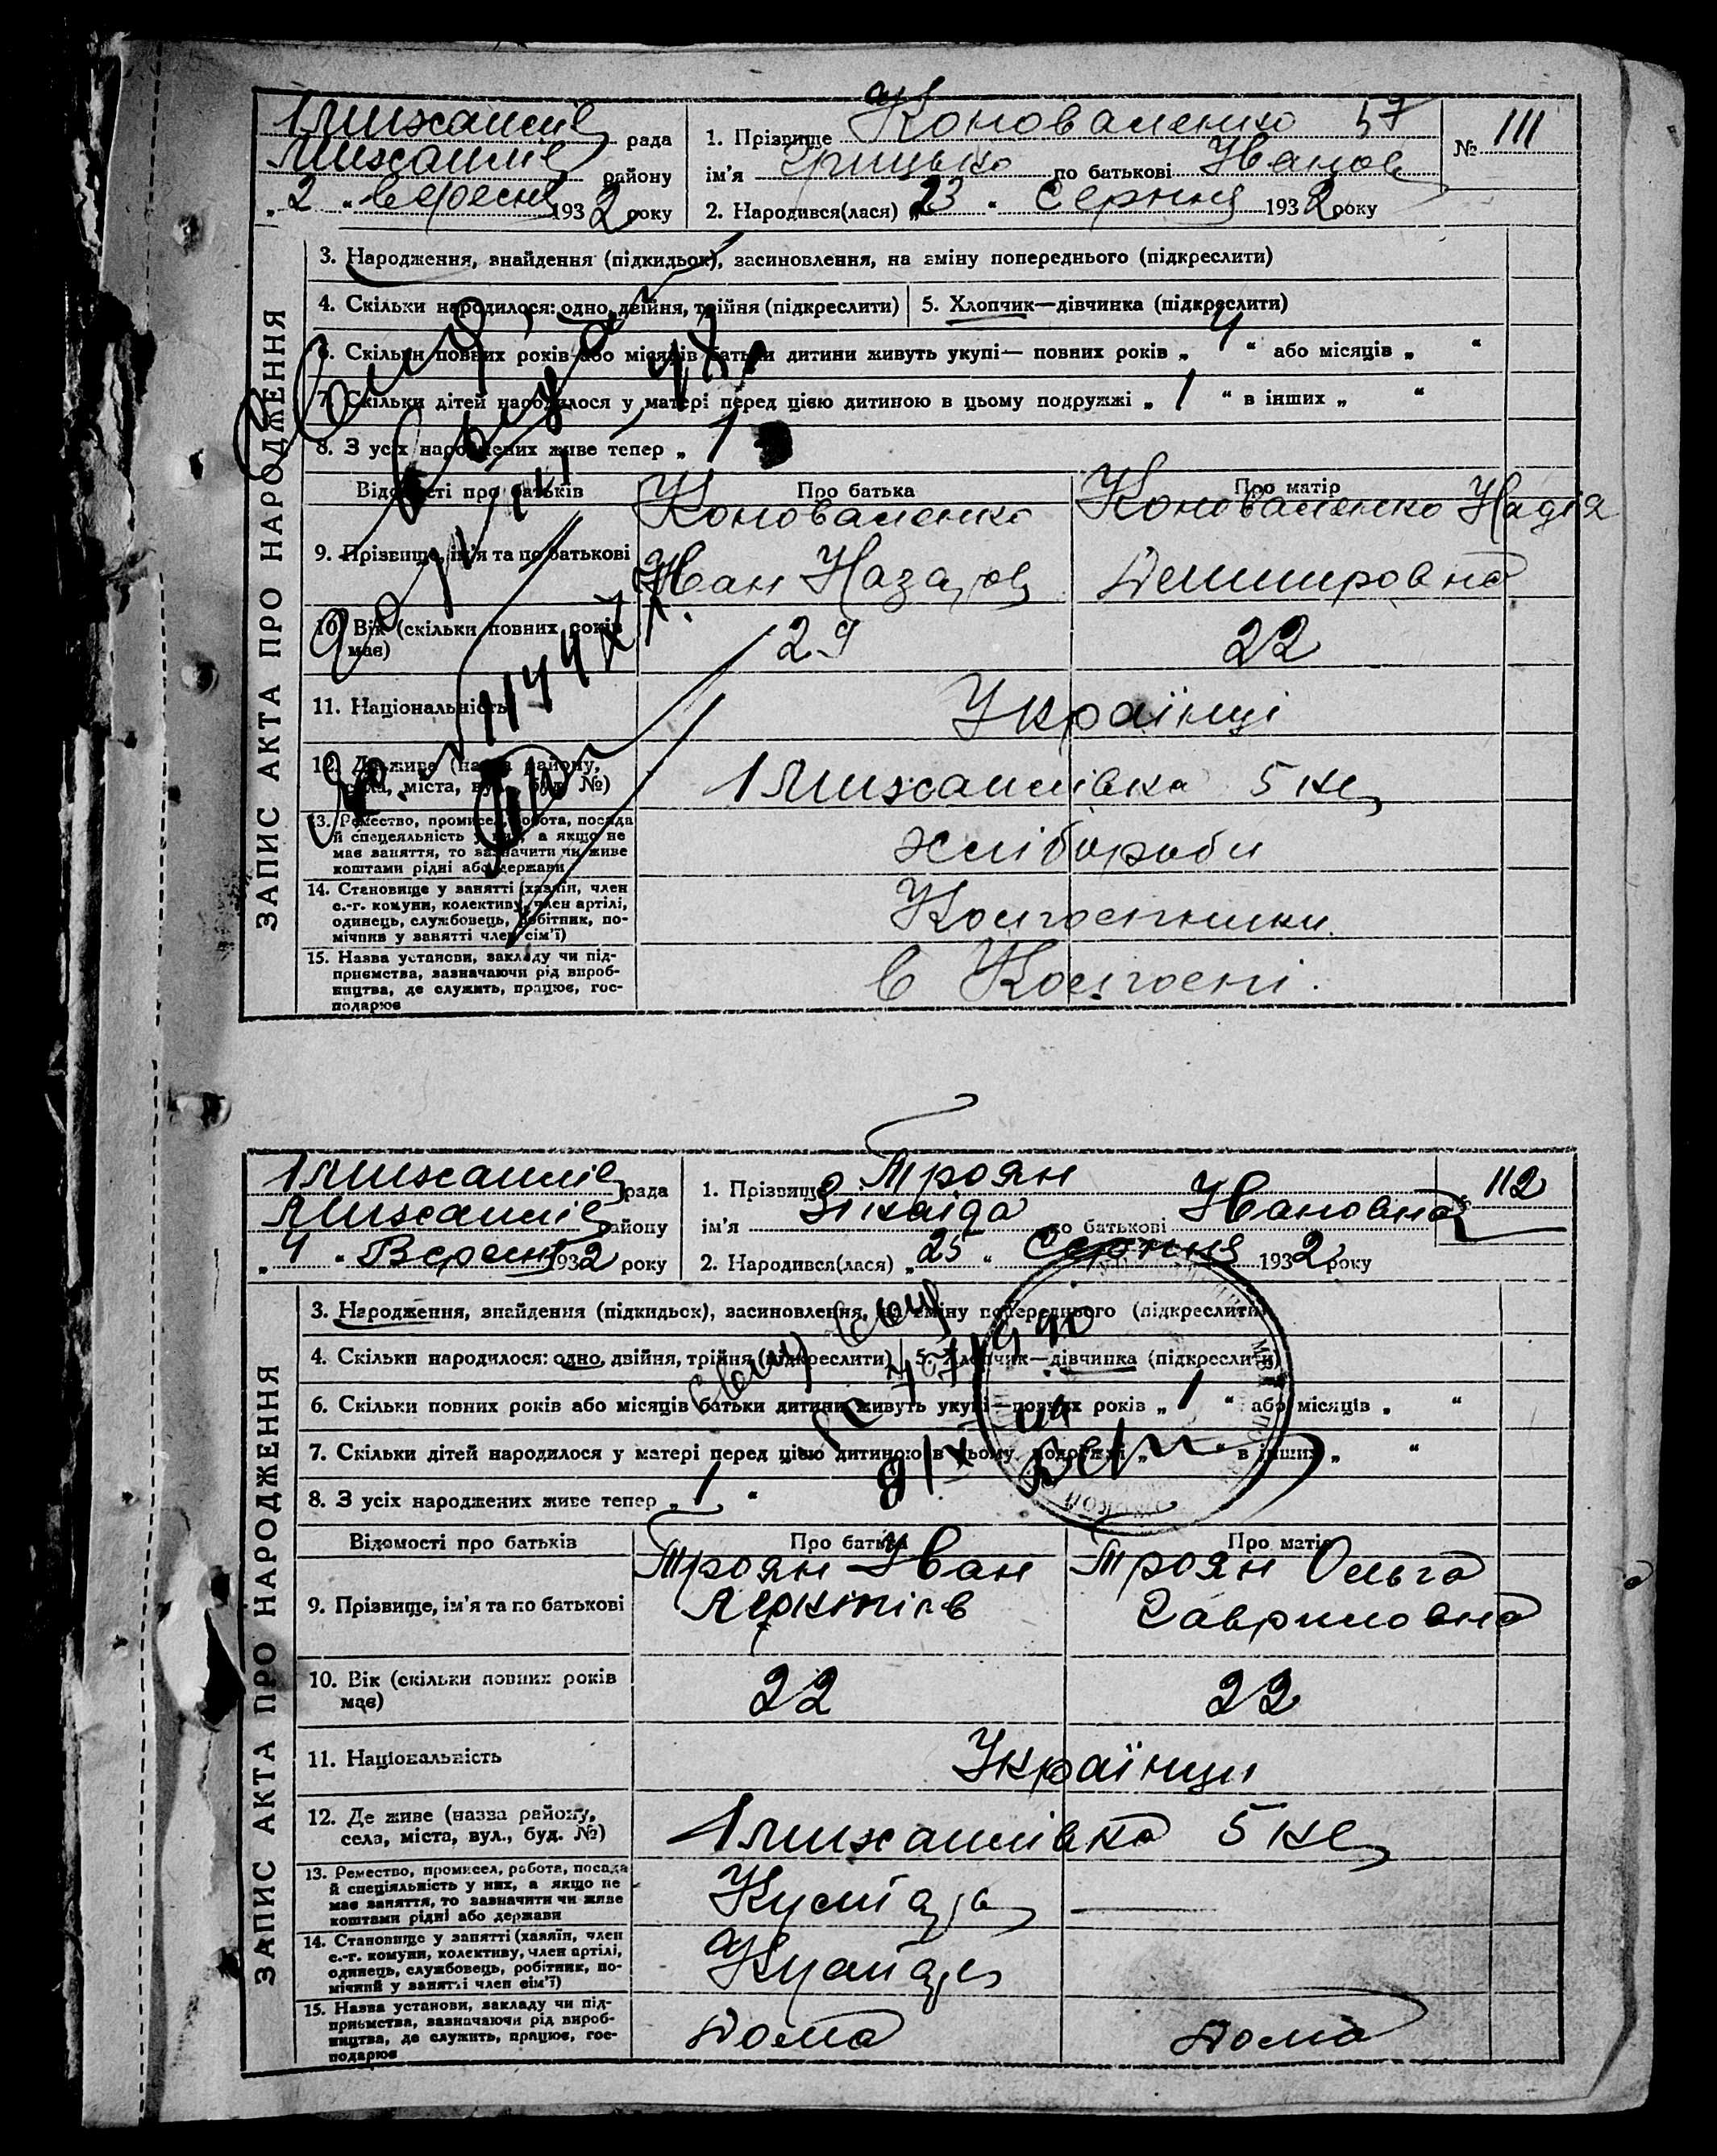 1 Михайлів рада
Михайлів району
„ 2 “ вересня 1932 року
1. Прізвище Коноваленко 57
ім'я Грицько по батькові Іванов
2. Народився(лася) „ 23 “ Серпня 1932 року
№ 111
ЗАПИС АКТА ПРО НАРОДЖЕННЯ
3. Народження, знайдення (підкидьок), засиновлення, на зміну попереднього (підкреслити)
4. Скільки народилося: одно, двійня, трійня (підкреслити)
5. Хлопчик—дівчинка (підкреслити)
6. Скільки повних років або місяців батьки дитини живуть укупі— повних років „ 4 “ або місяців „ “
7. Скільки дітей народилося у матері перед цією дитиною в цьому подружжі „ 1 “ в інших „ “
8. З усіх народжених живе тепер „ 1
Відомості про батьків
Про батька
Про матір
9. Прізвище, ім'я та по батькові
Коноваленко
Іван Назаров
Коноваленко Надія
10. Вік (скільки повних років має)
29
22
11. Національність
Українці
12. Де живе (назва району,
села, міста, вул., буд. №)
1 Михайлівка 5 км
13. Ремество, промисел, робота, посада
й спецеяльність у них, а якщо не
має заняття, то зазначити чи живе
коштами рідні або держави
хлібороби
14. Становище у занятті (хазяїн, член
с.-г. комуни, колективу, член артілі,
одинець, службовець, робітник, по-
мічник у занятті член сім'ї)
Колгоспники
15. Назва установи, закладу чи під-
приємства, зазначаючи рід вироб-
ництва, де служить, працює, гос-
подарює
в Колгоспі.
1 Михайлів рада
Михайлів району
„ 4 “ Вересня 1932 року
1. Прізвище Троян
ім'я Зінаіда по батькові Івановна
2. Народився(лася) „ 25 “ Серпня 1932 року
№ 112
ЗАПИС АКТА ПРО НАРОДЖЕННЯ
3. Народження, знайдення (підкидьок), засиновлення, на зміну попереднього (підкреслити)
4. Скільки народилося: одно, двійня, трійня (підкреслити)
5. Хлопчик—дівчинка (підкреслити)
6. Скільки повних років або місяців батьки дитини живуть укупі—повних років „ 1 “ або місяців „ “
7. Скільки дітей народилося у матері перед цією дитиною в цьому подружжі „ “ в інших „ “
8. З усіх народжених живе тепер „ 1 “
Відомості про батьків
Про батька
Про матір
9. Прізвище, ім'я та по батькові
Троян Іван
Троян Ольга
Гавриловна
10. Вік (скільки повних років
має)
22
22
11. Національність
Українци
12. Де живе (назва району,
села, міста, вул., буд. №)
1 Михайлівка 5 км
13. Ремество, промисел, робота, посада
й спеціяльність у них, а якщо не
має заняття, то зазначити чи живе
коштами рідні або держави
Кустарь
14. Становище у занятті (хазяїн, член
с.-г. комуни, колективу, член артілі,
одинець, службовець, робітник, по-
мічний у занятті член сім'ї)
15. Назва установи, закладу чи під-
приємства, зазначаючи рід вироб-
ництва, де служить, працює, гос-
подарює
дома
дома